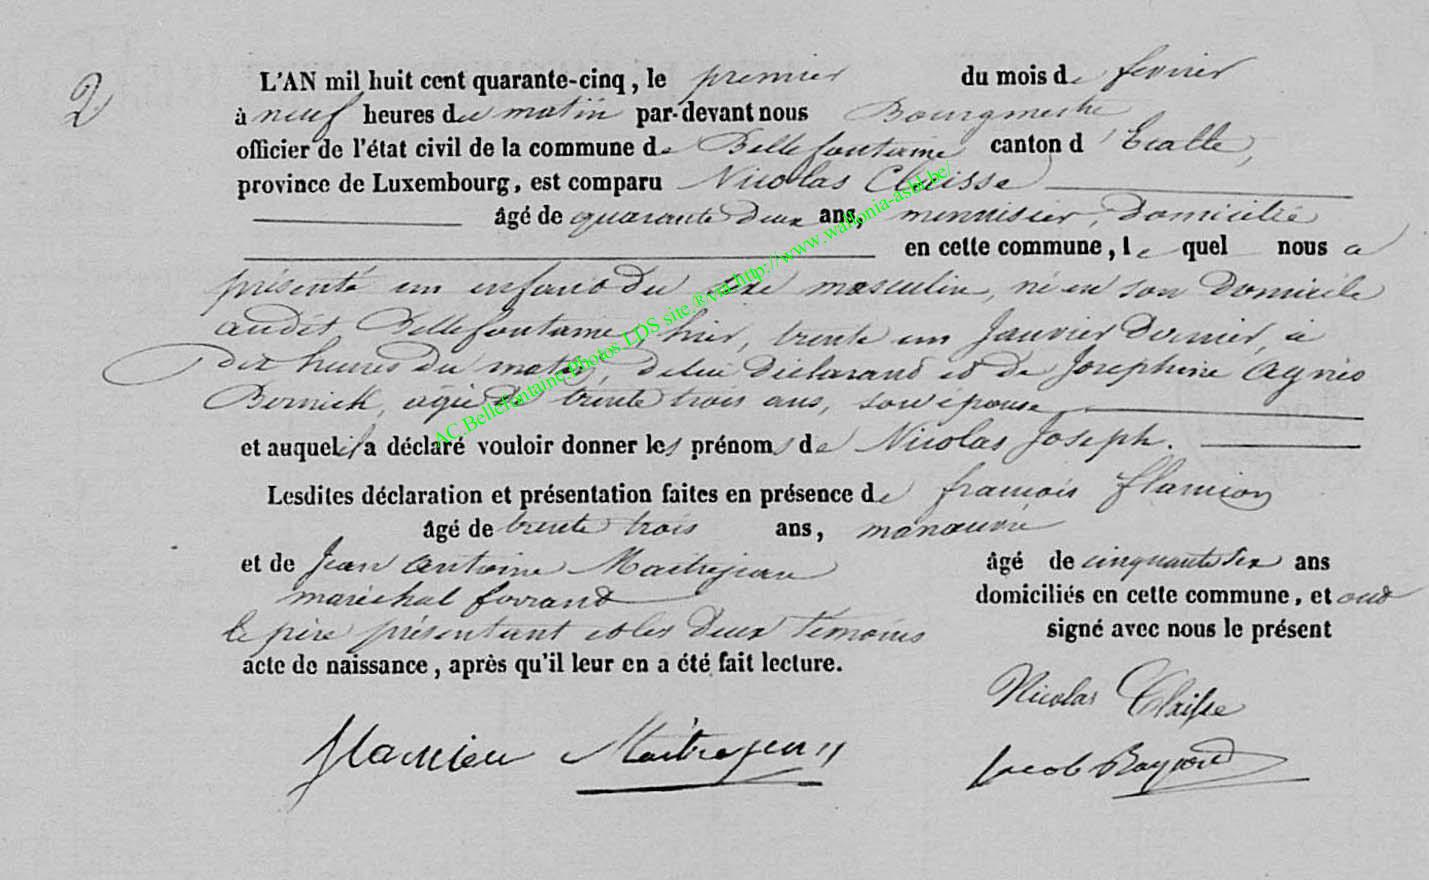 2
L'AN mil huit cent quarante-cinq, le premier du mois de fevrier
à neuf heures du matin par-devant nous Bourgmestre
officier de l'état civil de la commune de Bellefontaine canton d'Etalle,
province de Luxembourg, est comparu Nicolas Claisse
âgé de quarante deux ans, menuisier, domicilié
en cette commune, le quel nous a
présenté un enfant du sexe masculin, né en son domicile
audit Bellefontaine, hier, trente un Janvier dernier, à
dix heures du matin, de lui déclarant et de Josephine Agnès
Bernick, agée de trente trois ans, son épouse
et auquel il a déclaré vouloir donner les prénoms de Nicolas Joseph.
Lesdites déclaration et présentation faites en présence de françois flamion
âgé de trente trois ans, manœuvre
et de Jean Antoine Maitrejean âgé de cinquante six ans
maréchal ferrant domiciliés en cette commune, et ont
le père présentant et les deux témoins signé avec nous le présent
acte de naissance, après qu'il leur en a été fait lecture.
Nicolas Claisse
flamion Maitrejean
Jacob
AC.Bellefontaine,Photos LDS site,®via http://www.wallonia-asbl.be/